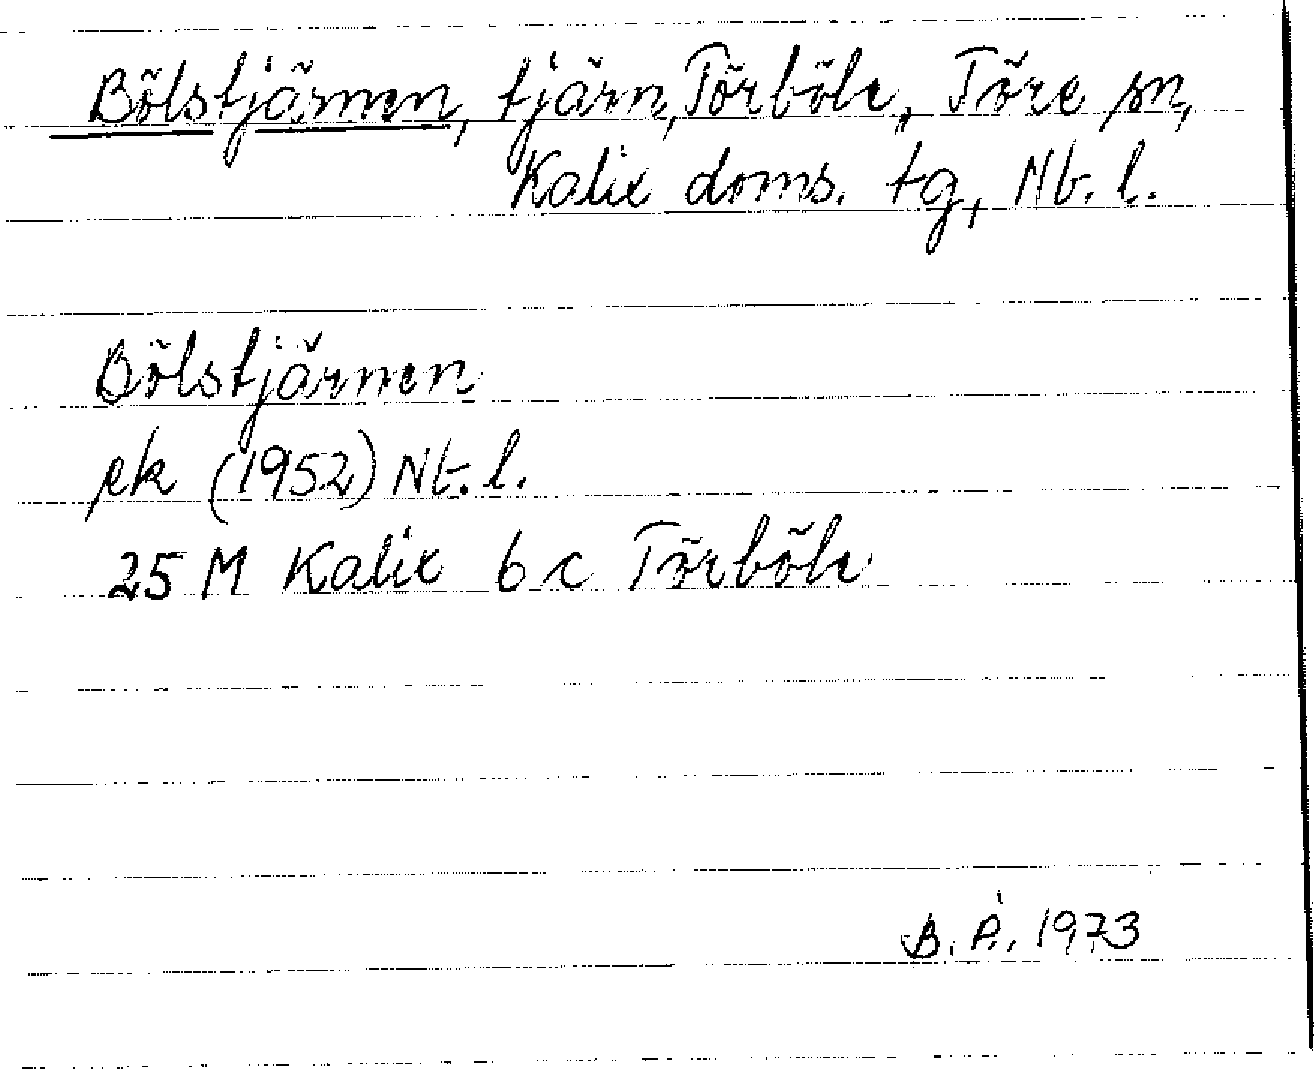 Bölstjärnen, tjärn, Törböle, Töre sn,
Kalix doms. tg, Nb. l.
Bölstjärnen
ek (1952) Nb. l.
25 M Kalix 6 c Törböle
B. Å. 1973